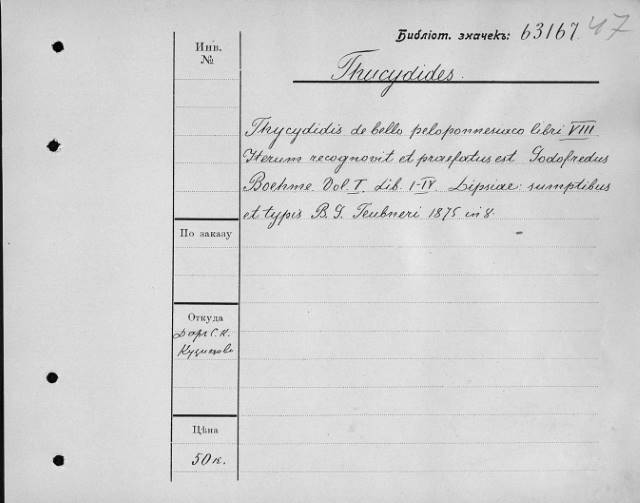 Библіот. значекъ: 63167 47
Инв.
№
Thucydides.
Thycydidis de bello peloponnesiaco libri VIII
Iterum recognovit et praefatus est Godofredus
Boehme. Vol. I. Lib. I-IV. Lipsiae: sumptibus
et typis B. G. Teubneri 1875 in 8.
По заказу
Откуда
Даръ С. К.
Кузнецова
Цѣна
50 к.